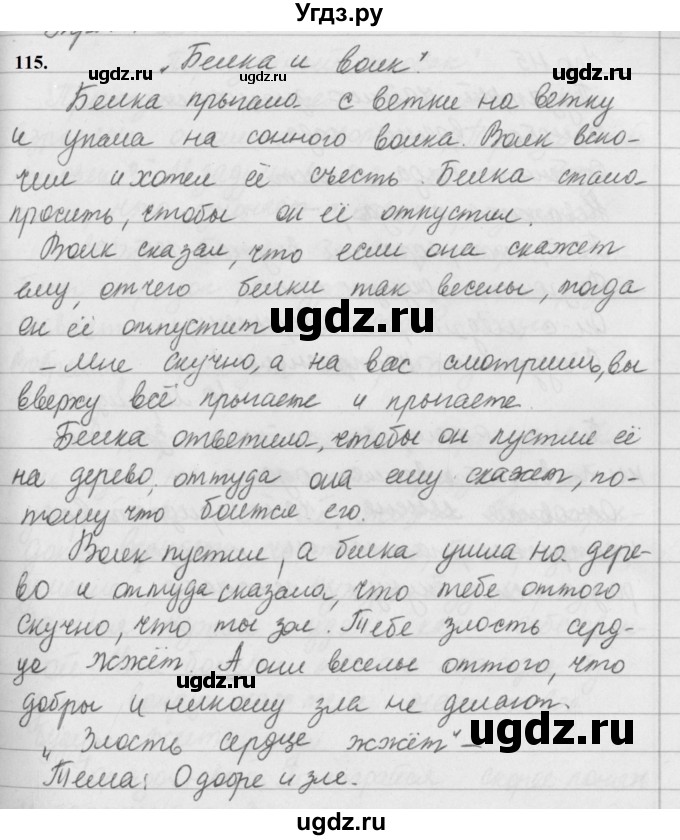 Угдз.ру
115.
„Белка и волк".
Белка прыгала с ветки на ветку
и упала на сонного волка. Волк вско-
чил и хотел её съесть. Белка стала
просить, чтобы он её отпустил.
Волк сказал, что если она скажет
ему, отчего белки так веселы, тогда
он её отпустит
– Мне скучно, а на вас смотришь, вы
вверху всё прыгаете и прыгаете.
Белка ответила, чтобы он пустил её
на дерево, оттуда она ему скажет, по-
тому что боится его.
Волк пустил, а белка ушла на дере-
во и оттуда сказала, что тебе оттого
скучно, что ты зол. Тебе злость серд-
це жжёт. А они веселы оттого, что
добры и никому зла не делают.
„Злость сердце жжёт" –
Тема: О добре и зле.
ugdz.ru
ugdz.ru
ugdz.ru
ugdz.ru
ugdz.ru
ugdz.ru
ugdz.ru
ugdz.ru
ugdz.ru